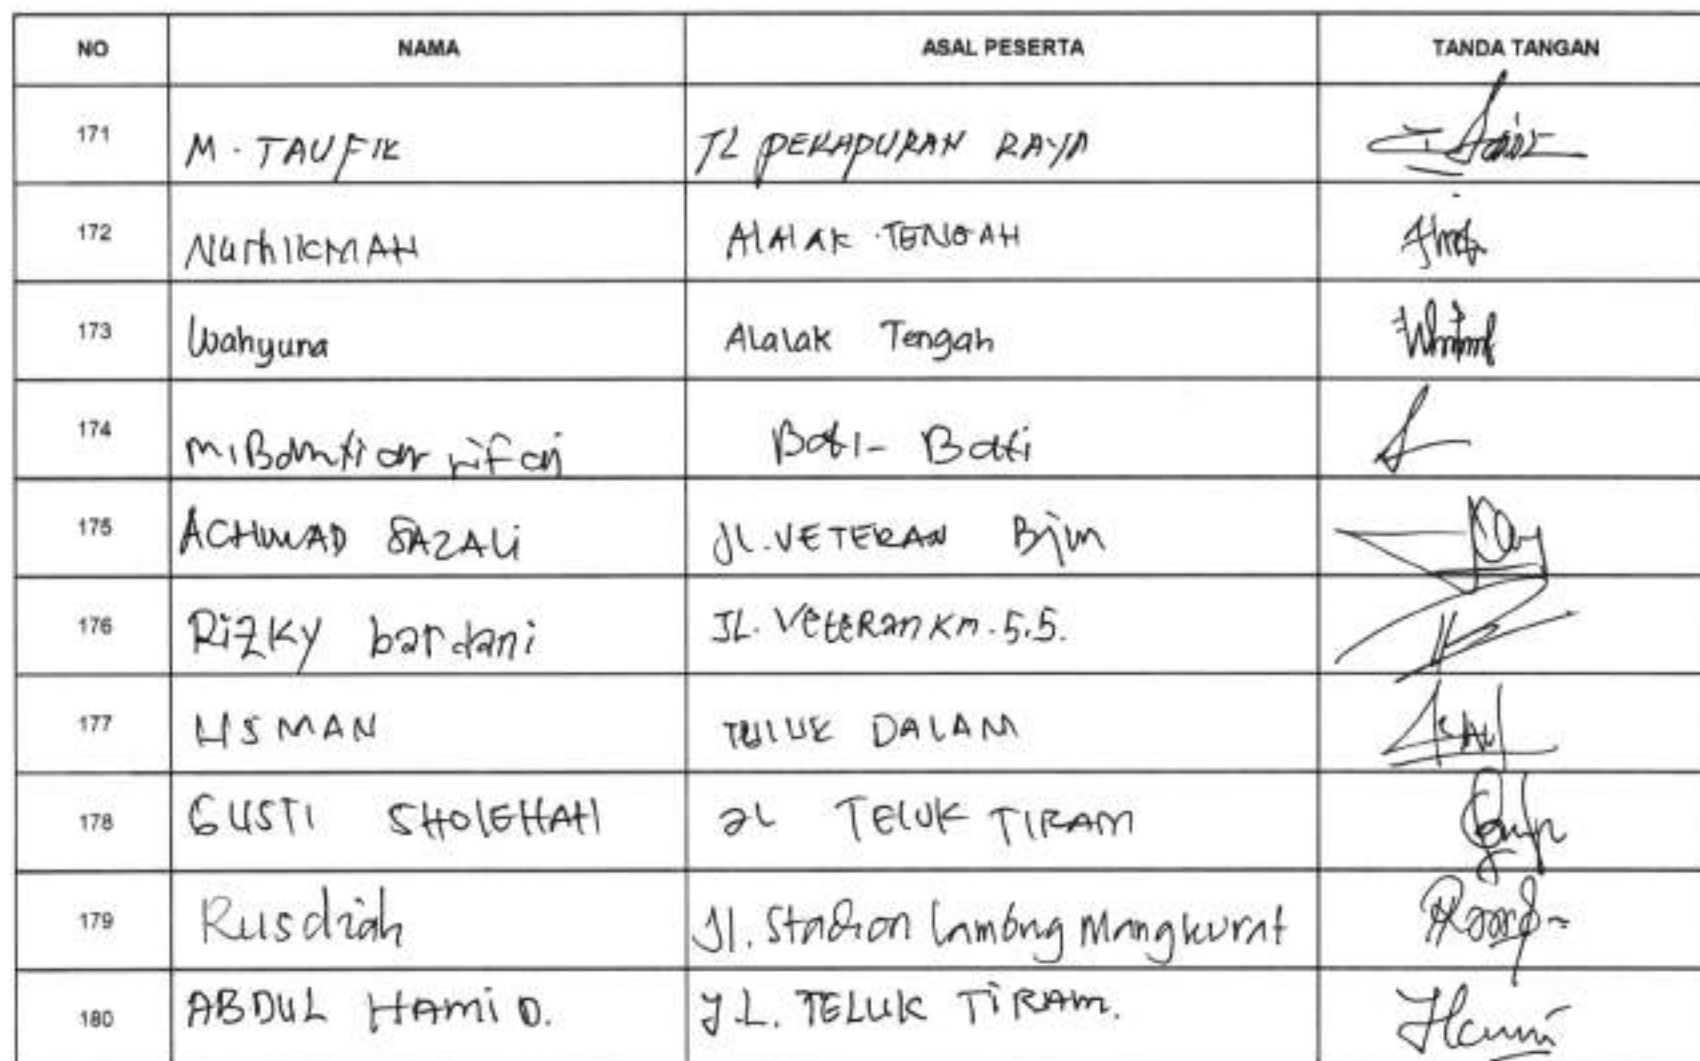 NO NAMA ASAL PESERTA TANDA TANGAN
171 M. TAUFIK JL PEKAPURAN RAYA
172 NurhIKMAH AlAlAK TENGAH
173 Wahyuna Alalak Tengah
174 rifai Bati-Bati
175 ACHMAD GAZALi JL.VETERAN Bjm
176 RiZKy bardani JL. VeteRan Km.5.5.
177 USMAN DALAM
178 GUSTI SHOlEHAH JL TElUK TIRAM
179 Rusdiah Jl. Stadion Lambung Mangkurat
180 ABDUL HAmiD. JL. TELUK TiRAM.